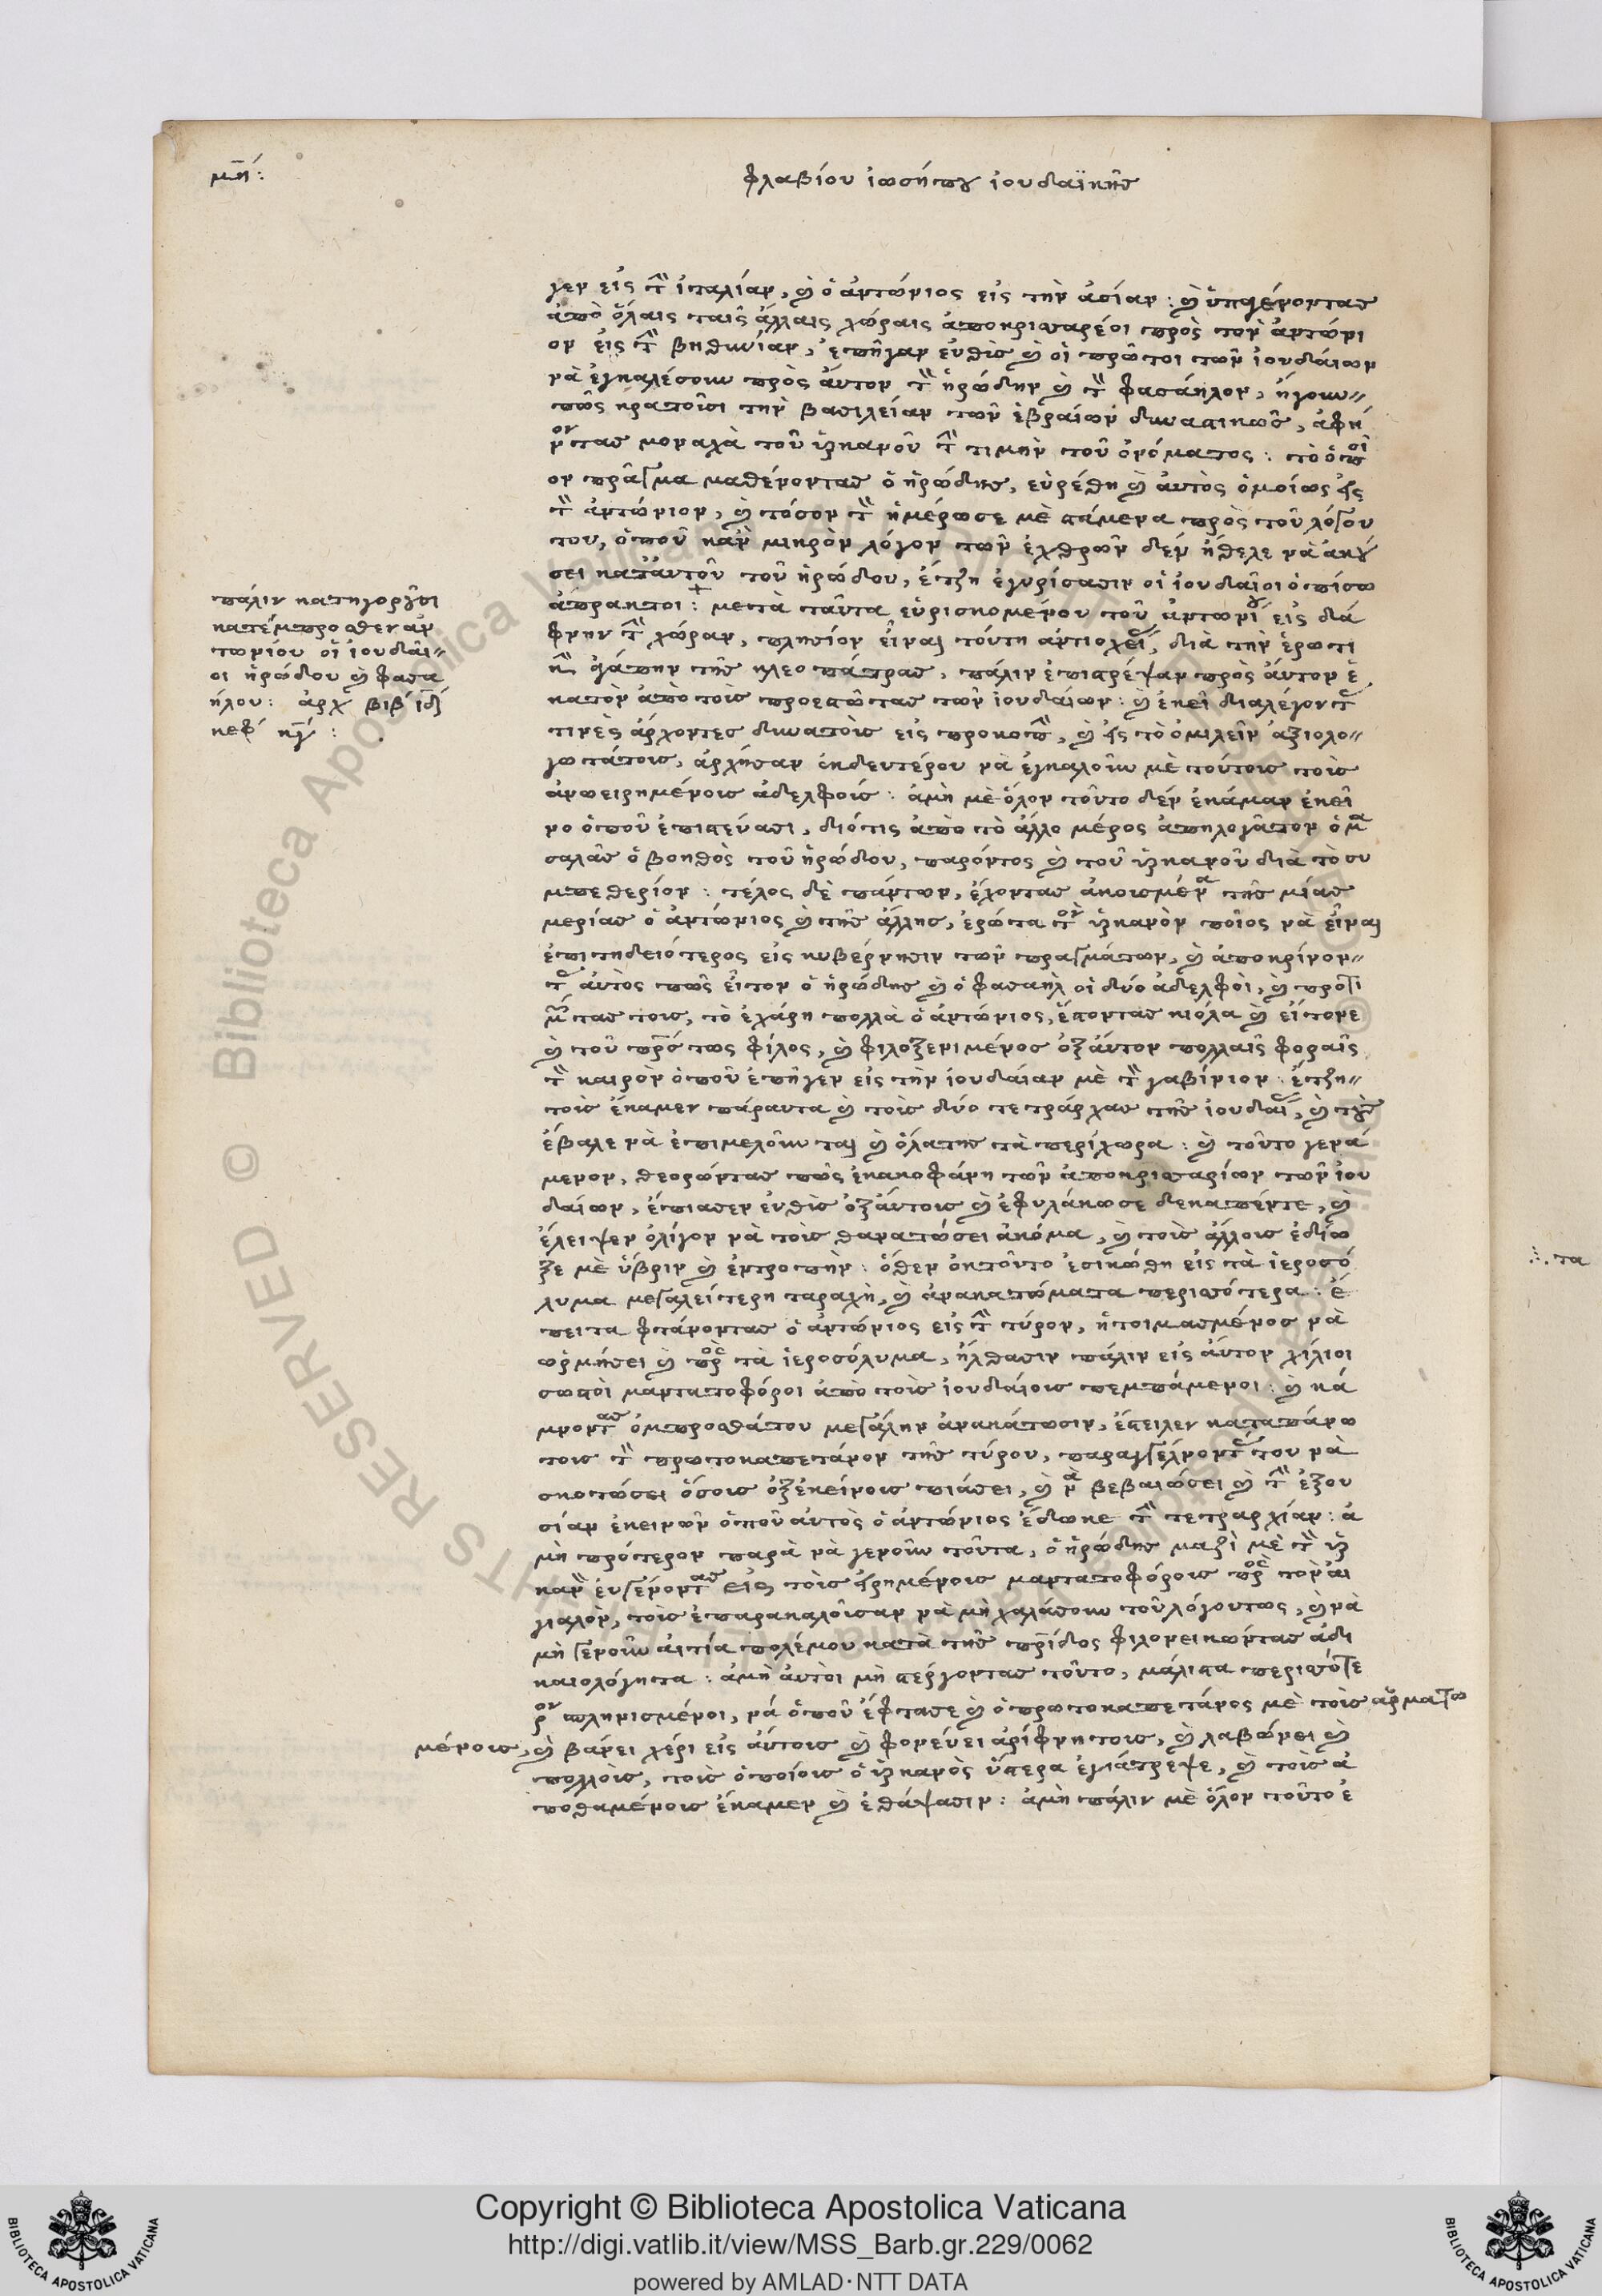 μη:
φλαβίου ἰωσήπου ἰουδαϊκῆς
γεν εἰς τὴν ἰταλίαν, καὶ ὁ ἀντώνιος εἰς τὴν ἀσίαν: καὶ
ἀπὸ ὅλαις ταῖς ἄλλαις χώραις ἀποκρισαρέοι πρὸς τὸν ἀντώνι
ον εἰς τὴν βηθυνίαν, ἐπῆγαν εὐθὺς καὶ οἱ πρῶτοι τῶν ἰουδάιων
νὰ ἐγκαλέσουν πρὸς ἀυτον τὸν ἡρώδην καὶ τὸν φασάηλον, ἤγουν
πῶς κρατοῦσι τὴν βασιλείαν τῶν ἑβραίων δυναστικῶς, ἀφή
νοντας μοναχὰ τοῦ ὑρκανοῦ τὴν τιμὴν τοῦ ὀνόματος: τὸ ὁποῖ
ον πρᾶγμα μαθένοντας ὁ ἡρώδης, εὑρέθη καὶ ἀυτὸς ὁμοίως εἰς
τὸν ἀντώνιον, καὶ τόσον τὸν ἡμέρωσε μὲ στάμενα πρὸς τοῦ λόγου
του, ὁποῦ κἂν μικρὸν λόγον τῶν ἐχθρῶν δὲν ἤθελε νὰ ἀκού
σει κατ' ἀυτοῦ τοῦ ἡρώδου, ἔτζη ἐγυρίσασιν οἱ ἰουδαῖοι ὀπίσω
ἄπρακτοι: μετὰ ταῦτα εὑρισκομένου τοῦ ἀντωνίου εἰς δά
φνην τὴν χώραν, πλησίον εἶναι τούτη ἀντιοχείας, διὰ τὴν ἐρωτι
κὴν ἀγάπην τῆς κλεοπάτρας, πάλιν ἐπιστρέψαν πρὸς ἀυτον ἑ
κατον ἀπὸ τοὺς προεστῶτας τῶν ἰουδάιων: καὶ ἐκεῖ διαλέγοντας
τινὲς ἄρχοντες δυνατοὺς εἰς προκοπὴν, καὶ εἰς τὸ ὁμιλεῖν ἀξιολο
γωτάτους, ἀρχήσαν ἐκδευτέρου νὰ ἐγκαλοῦν μὲ τούτοις τοὺς
ἀνωειρημένους ἀδελφούς: ἀμὴ μὲ ὅλον τοῦτο δὲν ἐκάμαν ἐκεῖ
νο ὁποῦ ἐπιστεύασι, διότις ἀπὸ τὸ ἄλλο μέρος ἀπηλογᾶτον ὁ με
σαλᾶς ὁ βοηθὸς τοῦ ἡρώδου, παρόντος καὶ τοῦ ὑρκανοῦ διὰ τὸ συ
μπεθερίον: τέλος δὲ πάντων, ἔχοντας ἀκουσμένα τῆς μίας
μερίας ὁ ἀντώνιος καὶ τῆς ἄλλης, ἐρώτα τὸν ὑρκανὸν ποῖος νὰ εἶναι
ἐπιτηδειότερος εἰς κυβέρνησιν τῶν πραγμάτων, καὶ ἀποκρίνον
τας ἀυτὸς πῶς εἶτον ὁ ἡρώδης καὶ ὁ φασαὴλ οἱ δύο ἀδελφοὶ, καὶ προτι
μῶντας τους, τὸ ἐχάρη πολλὰ ὁ ἀντώνιος, ἔστοντας κιόλα καὶ εἶτονε
καὶ τοῦ πατρός τως φίλος, καὶ φιλοξενιμένος ὀξ ἀυτον πολλαῖς φοραῖς
τὸν καιρὸν ὁποῦ ἐπῆγεν εἰς τὴν ἰουδάιαν μὲ τὸν γαβίνιον: ἔτζη
τοὺς ἔκαμεν πάραυτα καὶ τοὺς δύο τετράρχας τῆς ἰουδαίας, καὶ τοὺς
ἔβαλε νὰ ἐπιμελοῦνται καὶ ὅλα της τὰ περίχωρα: καὶ τοῦτο γενά
μενον, θεορώντας πῶς ἐκακοφάνη τῶν ἀποκρισαρίων τῶν ἰου
δάιων, ἔπιασεν εὐθὺς ὀξ ἀυτοὺς καὶ ἐφυλάκωσε δεκαπέντε, καὶ
ἔλειψεν ὀλίγον νὰ τοὺς θανατώσει ἀκόμα, καὶ τοὺς ἄλλους ἐδίω
ξε μὲ ὕβριν καὶ ἐντροπὴν: ὅθεν ὀκ τοῦτο ἐσικώθη εἰς τὰ ἱεροσό
λυμα μεγαλείτερη ταραχὴ, καὶ ἀνακατώματα περισσότερα: ἔ
πειτα φτάνοντας ὁ ἀντώνιος εἰς τὴν τύρον, ἡτοιμασμένος νὰ
ὁρμήσει καὶ πρὸς τὰ ἱεροσόλυμα, ἤλθασιν πάλιν εἰς ἀυτον χίλιοι
σωστοὶ μαντατοφόροι ἀπὸ τοὺς ἰουδάιους πεμπάμενοι: καὶ κά
μνοντας ὀμπροσθάτου μεγάλην ἀνακάτωσιν, ἔστειλεν καταπάνω
τους τὸν πρωτοκαπετάνον τῆς τύρου, παραγγέλνοντάς του νὰ
σκοτώσει ὅσους ὀξ ἐκείνους πιάσει, καὶ νὰ βεβαιώσει καὶ τὴν ἐξου
σίαν ἐκεινῶν ὁποῦ ἀυτὸς ὁ ἀντώνιος ἔδωκε τὴν τετραρχίαν: ἀ
μὴ πρότερον παρὰ νὰ γενοῦν τοῦτα, ὁ ἡρώδης μαζὶ μὲ τὸν ὑρ
κανὸν ἐυγένοντας εἰς τοὺς εἰρημένους μαντατοφόρους πρὸς τὸν ἀι
γιαλὸν, τοὺς ἐπαρακαλοῦσαν νὰ μὴ χαλάσουν τοῦ λόγου τως, καὶ νὰ
μὴ γενοῦν ἀιτία πολέμου κατὰ τῆς πατρίδος φιλονεικώντας ἀδι
καιολόγητα: ἀμὴ ἀυτοὶ μὴ στέργοντας τοῦτο, μάλιστα περισσότε
ρον πληρισμένοι, νά ὁποῦ ἔφτασε καὶ ὁ πρωτοκαπετάνος μὲ τοὺς ἀρματω
μένους, καὶ βάνει χέρι εἰς ἀυτους καὶ φονεύει ἀρίφνητους, καὶ λαβώνει καὶ
πολλοὺς, τοὺς ὁποίους ὁ ὑρκανὸς ὕστερα ἐγιάτρεψε, καὶ τοὺς ἀ
ποθαμένους ἔκαμεν καὶ ἐθάψασιν: ἀμὴ πάλιν μὲ ὅλον τοῦτο ἐ
πάλιν κατηγοροῦσι
κατέμπροσθεν ἀν
τωνίου οἱ ἰουδάι
οι ἡρώδου καὶ φασα
ήλου: ἀρχ βιβ ιδ
κεφ κγ:
τα
Copyright © Biblioteca Apostolica Vaticana
http://digi.vatlib.it/view/MSS_Barb.gr.229/0062
powered by AMLAD·NTT DATA
BIBLIOTECA APOSTOLICA VATICANA
BIBLIOTECA APOSTOLICA VATICANA